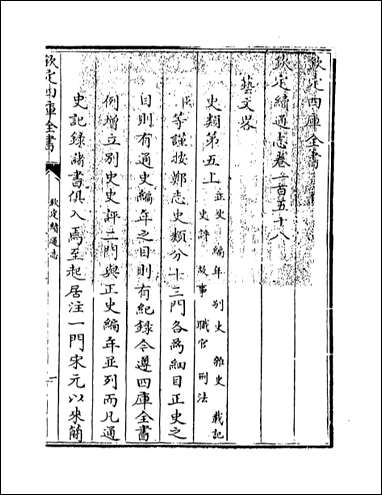 欽定四庫全書
欽定續通志卷一百五十八
藝文略
史類第五上 正史 編年 別史 雜史 載記
史評 故事 職官 刑法
臣等謹按鄭志史類分十三門各為細目正史之
目則有通史編年之目則有紀錄今遵四庫全書
例增立別史史評二門與正史編年並列而凡通
史記錄諸書俱入焉至起居注一門宋元以來簡
欽定四庫全書
欽定續通志
一